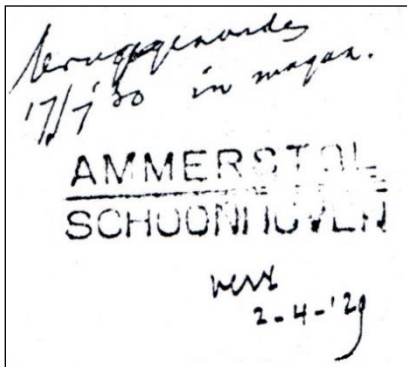 teruggezonden
17/7 '30 in magaz.
AMMERSTOL
SCHOONHOVEN
verz
2-4-'29